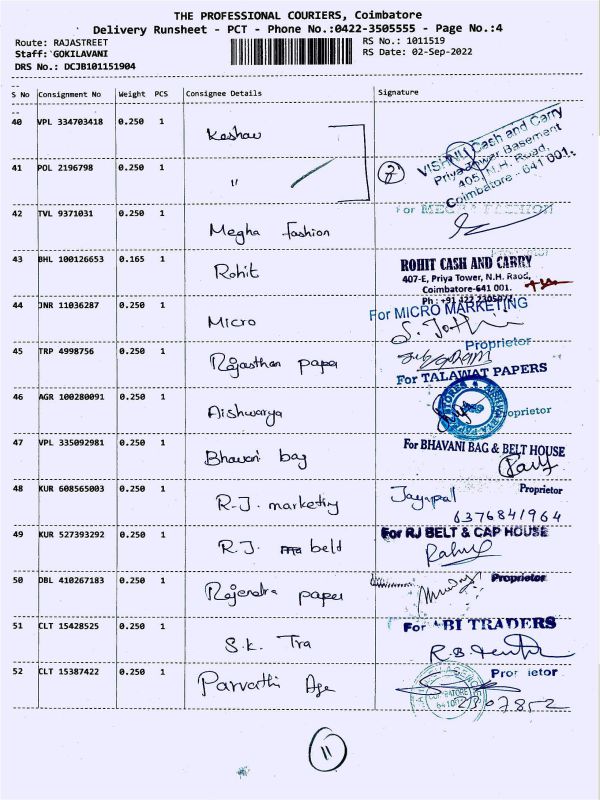 THE PROFESSIONAL COURIERS, Coimbatore
Delivery Runsheet - PCT - Phone No.:0422-3505555 - Page No.:4
Route: RAJASTREET
RS No.: 1011519
Staff: GOKILAVANI
RS Date: 02-Sep-2022
DRS No.: DCJB101151904
S No Consignment No Weight PCS Consignee Details Signature
40 VPL 334703418 0.250 1 Keshav
VISHNU Cash and Carry
Priya Tower Basement
405, N.H. Road,
Coimbatore - 641 001.
41 POL 2196798 0.250 1 "
2
42 TVL 9371031 0.250 1 Megha fashion
For MEGHA FASHION
43 BHL 100126653 0.165 1 Rohit
ROHIT CASH AND CARRY
407-E, Priya Tower, N.H. Raod,
Coimbatore-641 001.
Ph : +91 422 2305077
44 JNR 11036287 0.250 1 Micro
For MICRO MARKETING
Proprietor
45 TRP 4998756 0.250 1 Rajasthan paper
For TALAWAT PAPERS
46 AGR 100280091 0.250 1 Aishwarya
Proprietor
47 VPL 335092981 0.250 1 Bhavani bag
For BHAVANI BAG & BELT HOUSE
Proprietor
48 KUR 608565003 0.250 1 R.J. marketing
Jayapal
6376841964
49 KUR 527393292 0.250 1 R.J. beld
For RJ BELT & CAP HOUSE
Rahul
Proprietor
50 DBL 410267183 0.250 1 Rajendra paper
51 CLT 15428525 0.250 1 S.k. Tra
For ABI TRADERS
Proprietor
52 CLT 15387422 0.250 1 Parvathi Age
COIMBATORE
2307852
11